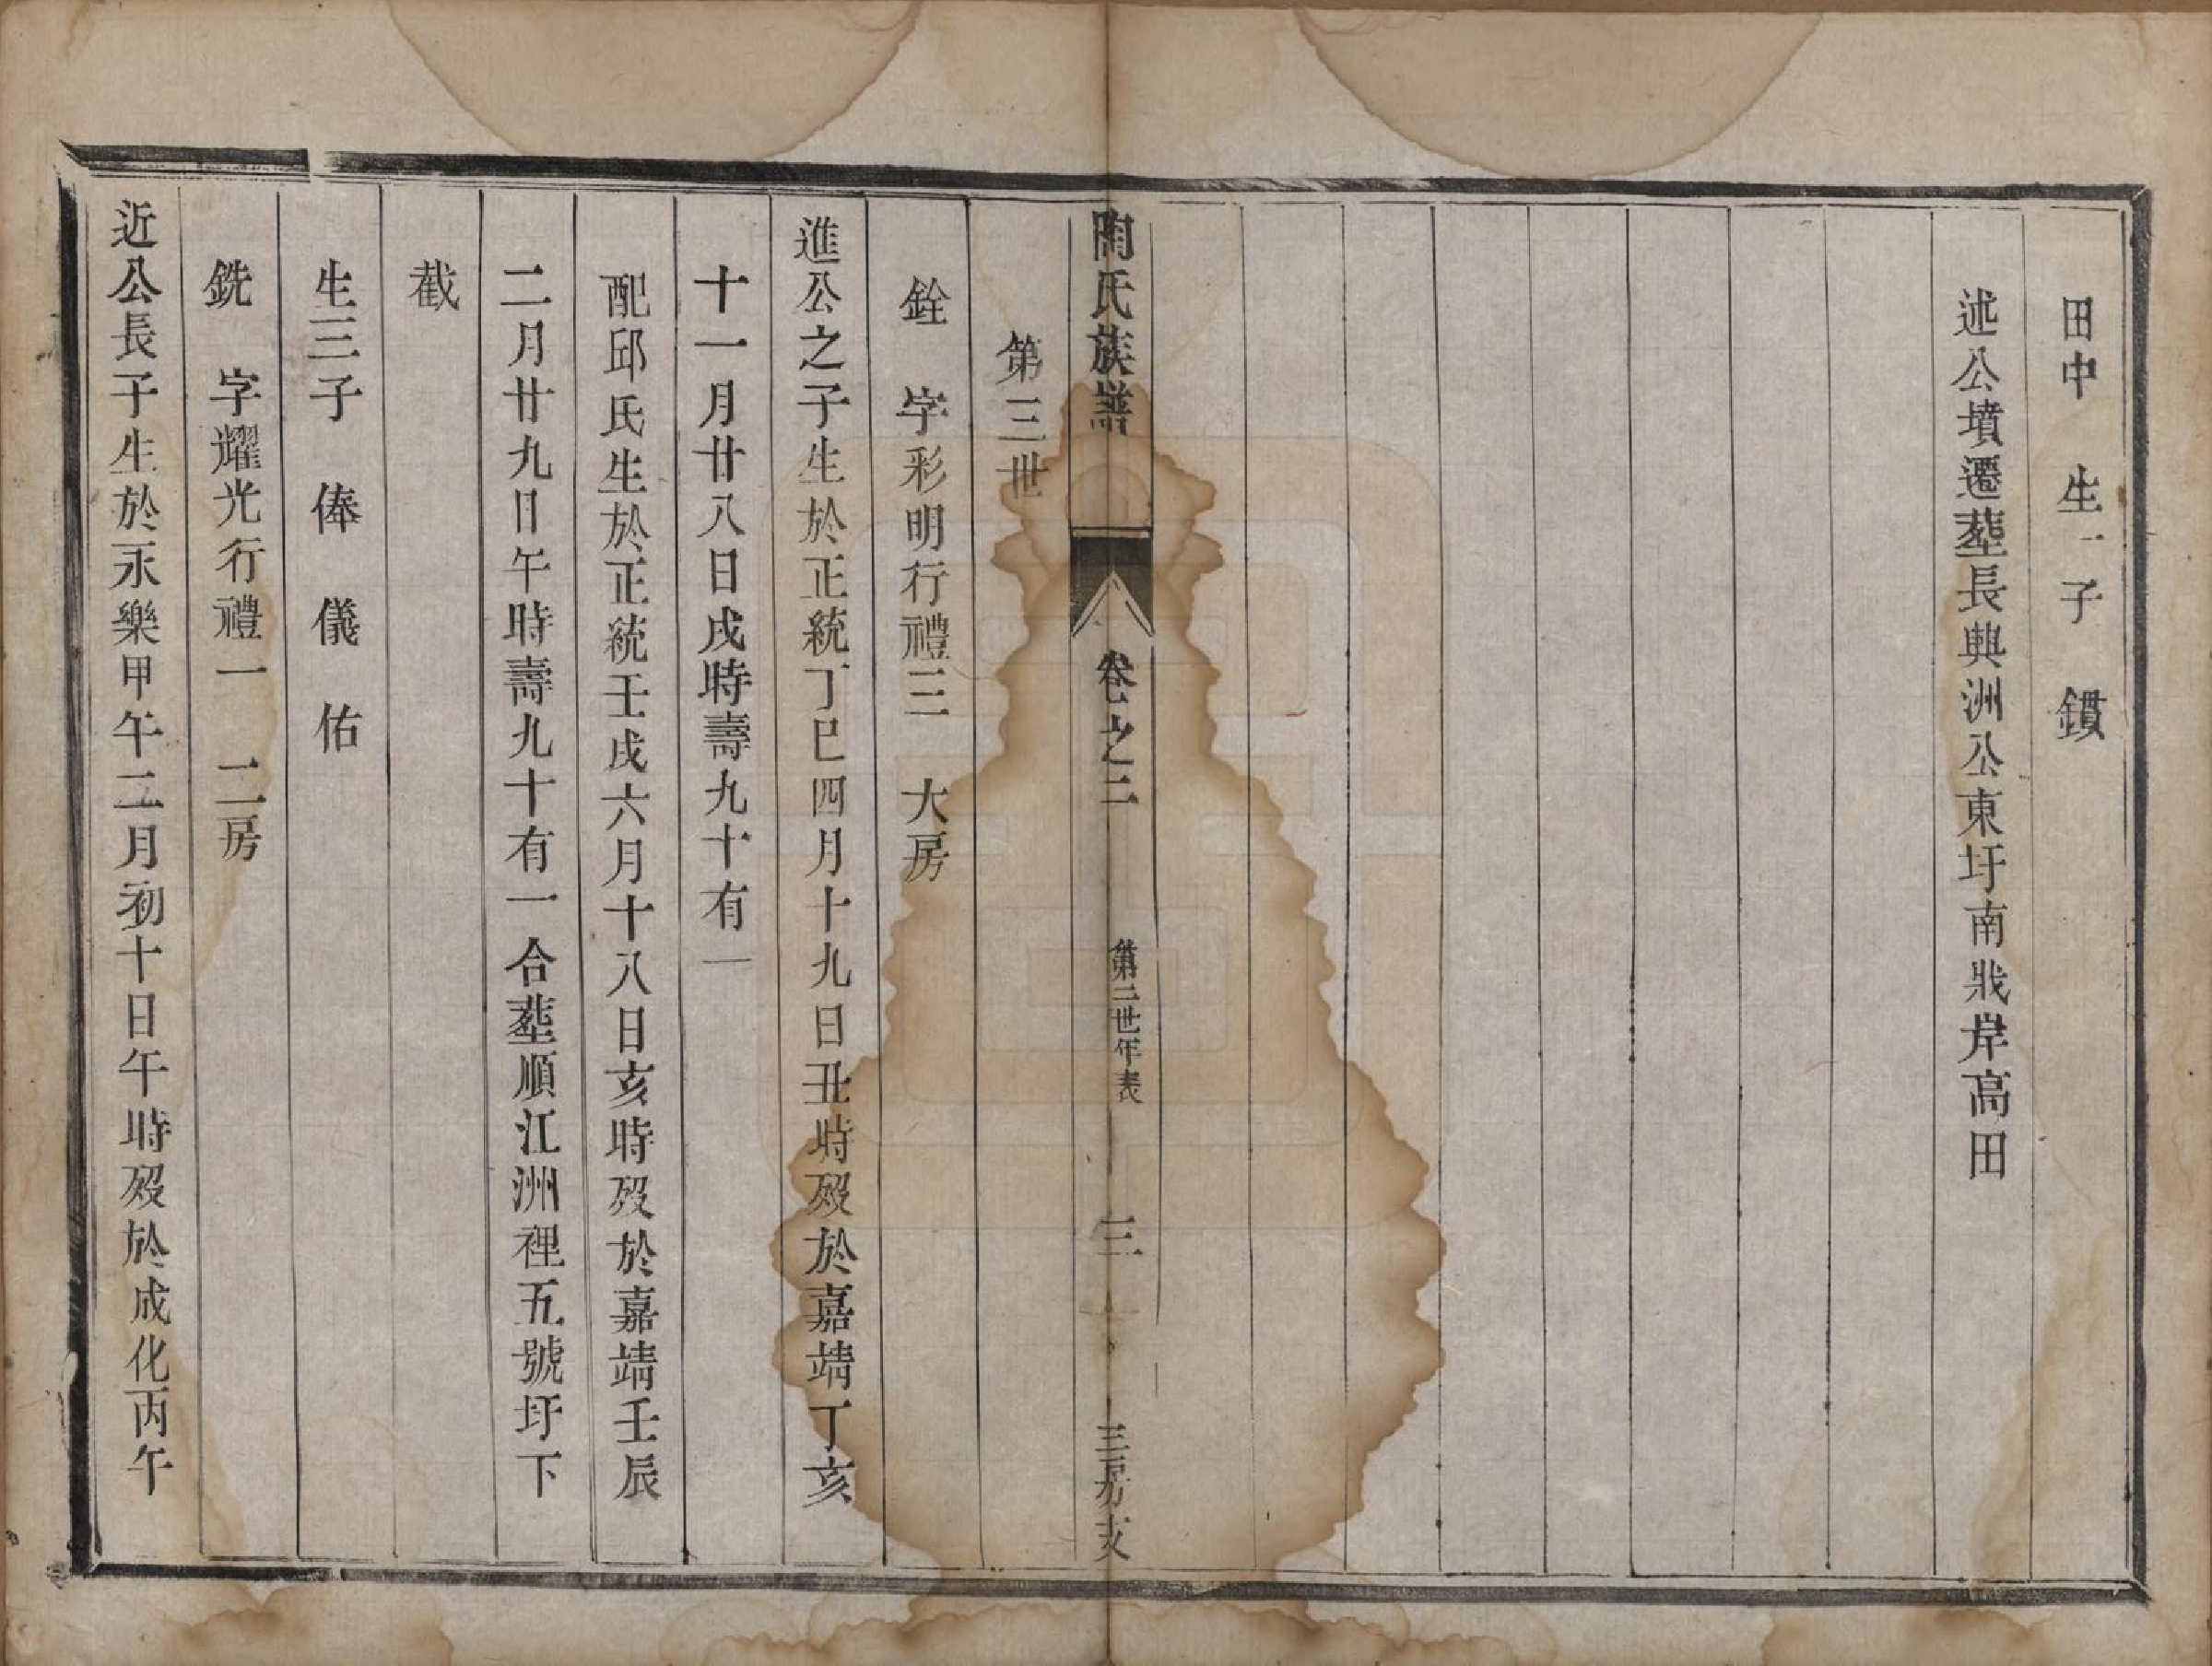 田中　生一子　鑽
述公墳遷塟長興洲公東圩南戕岸高田
陶氏族譜　卷之二　第三世年表　三　三房支
第三世
銓　字彩明行禮三　大房
進公之子生於正統丁巳四月十九日丑時殁於嘉靖丁亥
十一月廿八日戌時壽九十有一
配邱氏生於正統壬戌六月十八日亥時殁於嘉靖壬辰
二月廿九日午時壽九十有一合塟順江洲裡五號圩下
截
生三子　俸　儀　佑
銑　字耀光行禮一　二房
近公長子生於永樂甲午二月初十日午時殁於成化丙午